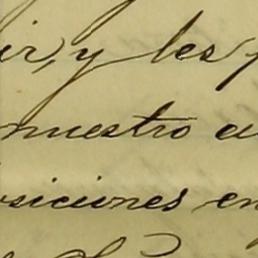 ir, y les
nuestro
siciones en